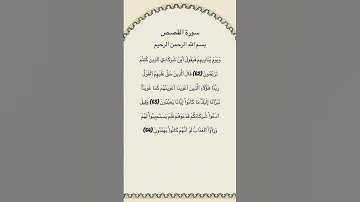 سورة القصص
بسم الله الرحمن الرحيم
وَيَوْمَ يُنَادِيهِمْ فَيَقُولُ أَيْنَ شُرَكَائِيَ الَّذِينَ كُنتُمْ
تَزْعُمُونَ (62) قَالَ الَّذِينَ حَقَّ عَلَيْهِمُ الْقَوْلُ
رَبَّنَا هَؤُلَاءِ الَّذِينَ أَغْوَيْنَا أَغْوَيْنَاهُمْ كَمَا غَوَيْنَا
تَبَرَّأْنَا إِلَيْكَ مَا كَانُوا إِيَّانَا يَعْبُدُونَ (63) وَقِيلَ
ادْعُوا شُرَكَاءَكُمْ فَدَعَوْهُمْ فَلَمْ يَسْتَجِيبُوا لَهُمْ
وَرَأَوُا الْعَذَابَ لَوْ أَنَّهُمْ كَانُوا يَهْتَدُونَ (64)